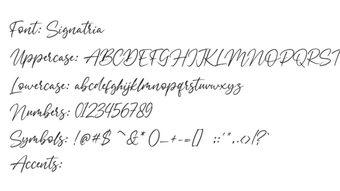 Font: Signatria
Uppercase: ABCDEFGHIJKLMNOPQRST
Lowercase: abcdefghijklmnopqrstuvwxyz
Numbers: 0123456789
Symbols: !@#$ ^&* ()_+-=[] ;:'",.<>/?`
Accents: